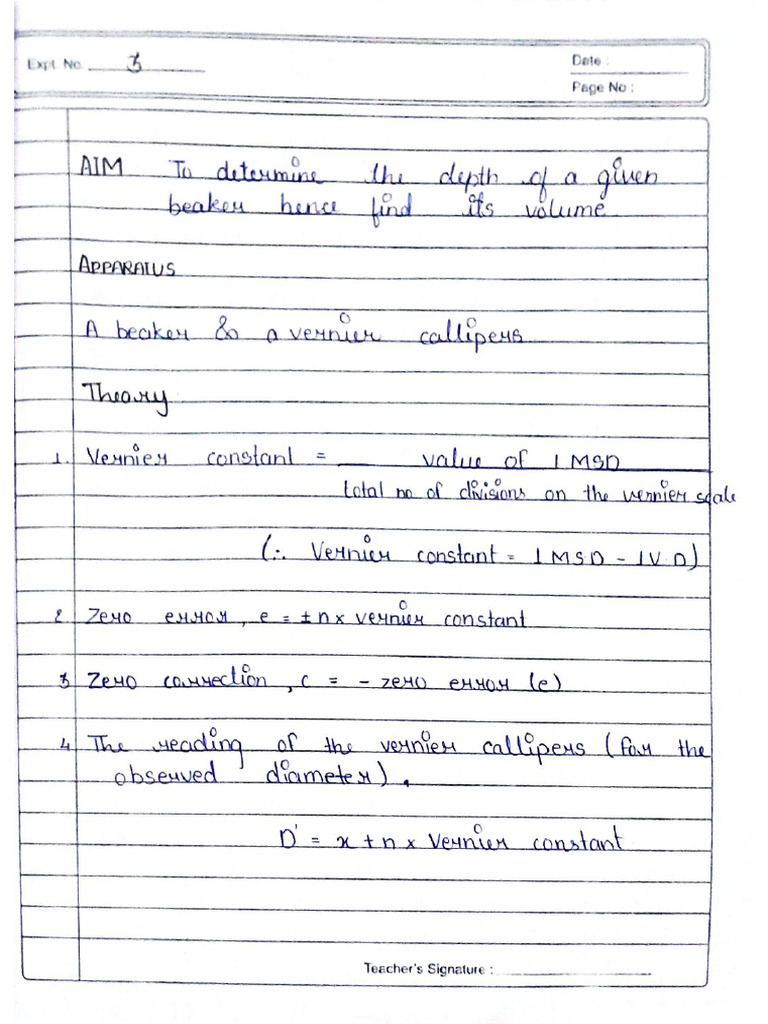 Expt. No. 3
Date :
Page No :
AIM To determine the depth of a given
beaker hence find its volume
APPARATUS
A beaker & a vernier callipers
Theory
1. Vernier constant = value of 1 MSD
total no of divisions on the vernier scale
(∴ Vernier constant = 1 MSD - 1 V.D)
2 Zero error, e = ± n x vernier constant
3 Zero correction, c = - zero error (e)
4 The reading of the vernier callipers (for the
observed diameter),
D' = x + n x vernier constant
Teacher's Signature :